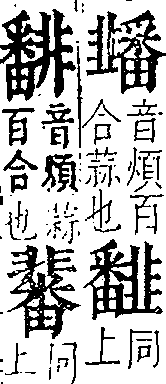 音煩百
合蒜也
同
上
音煩蒜
百合也
同
上